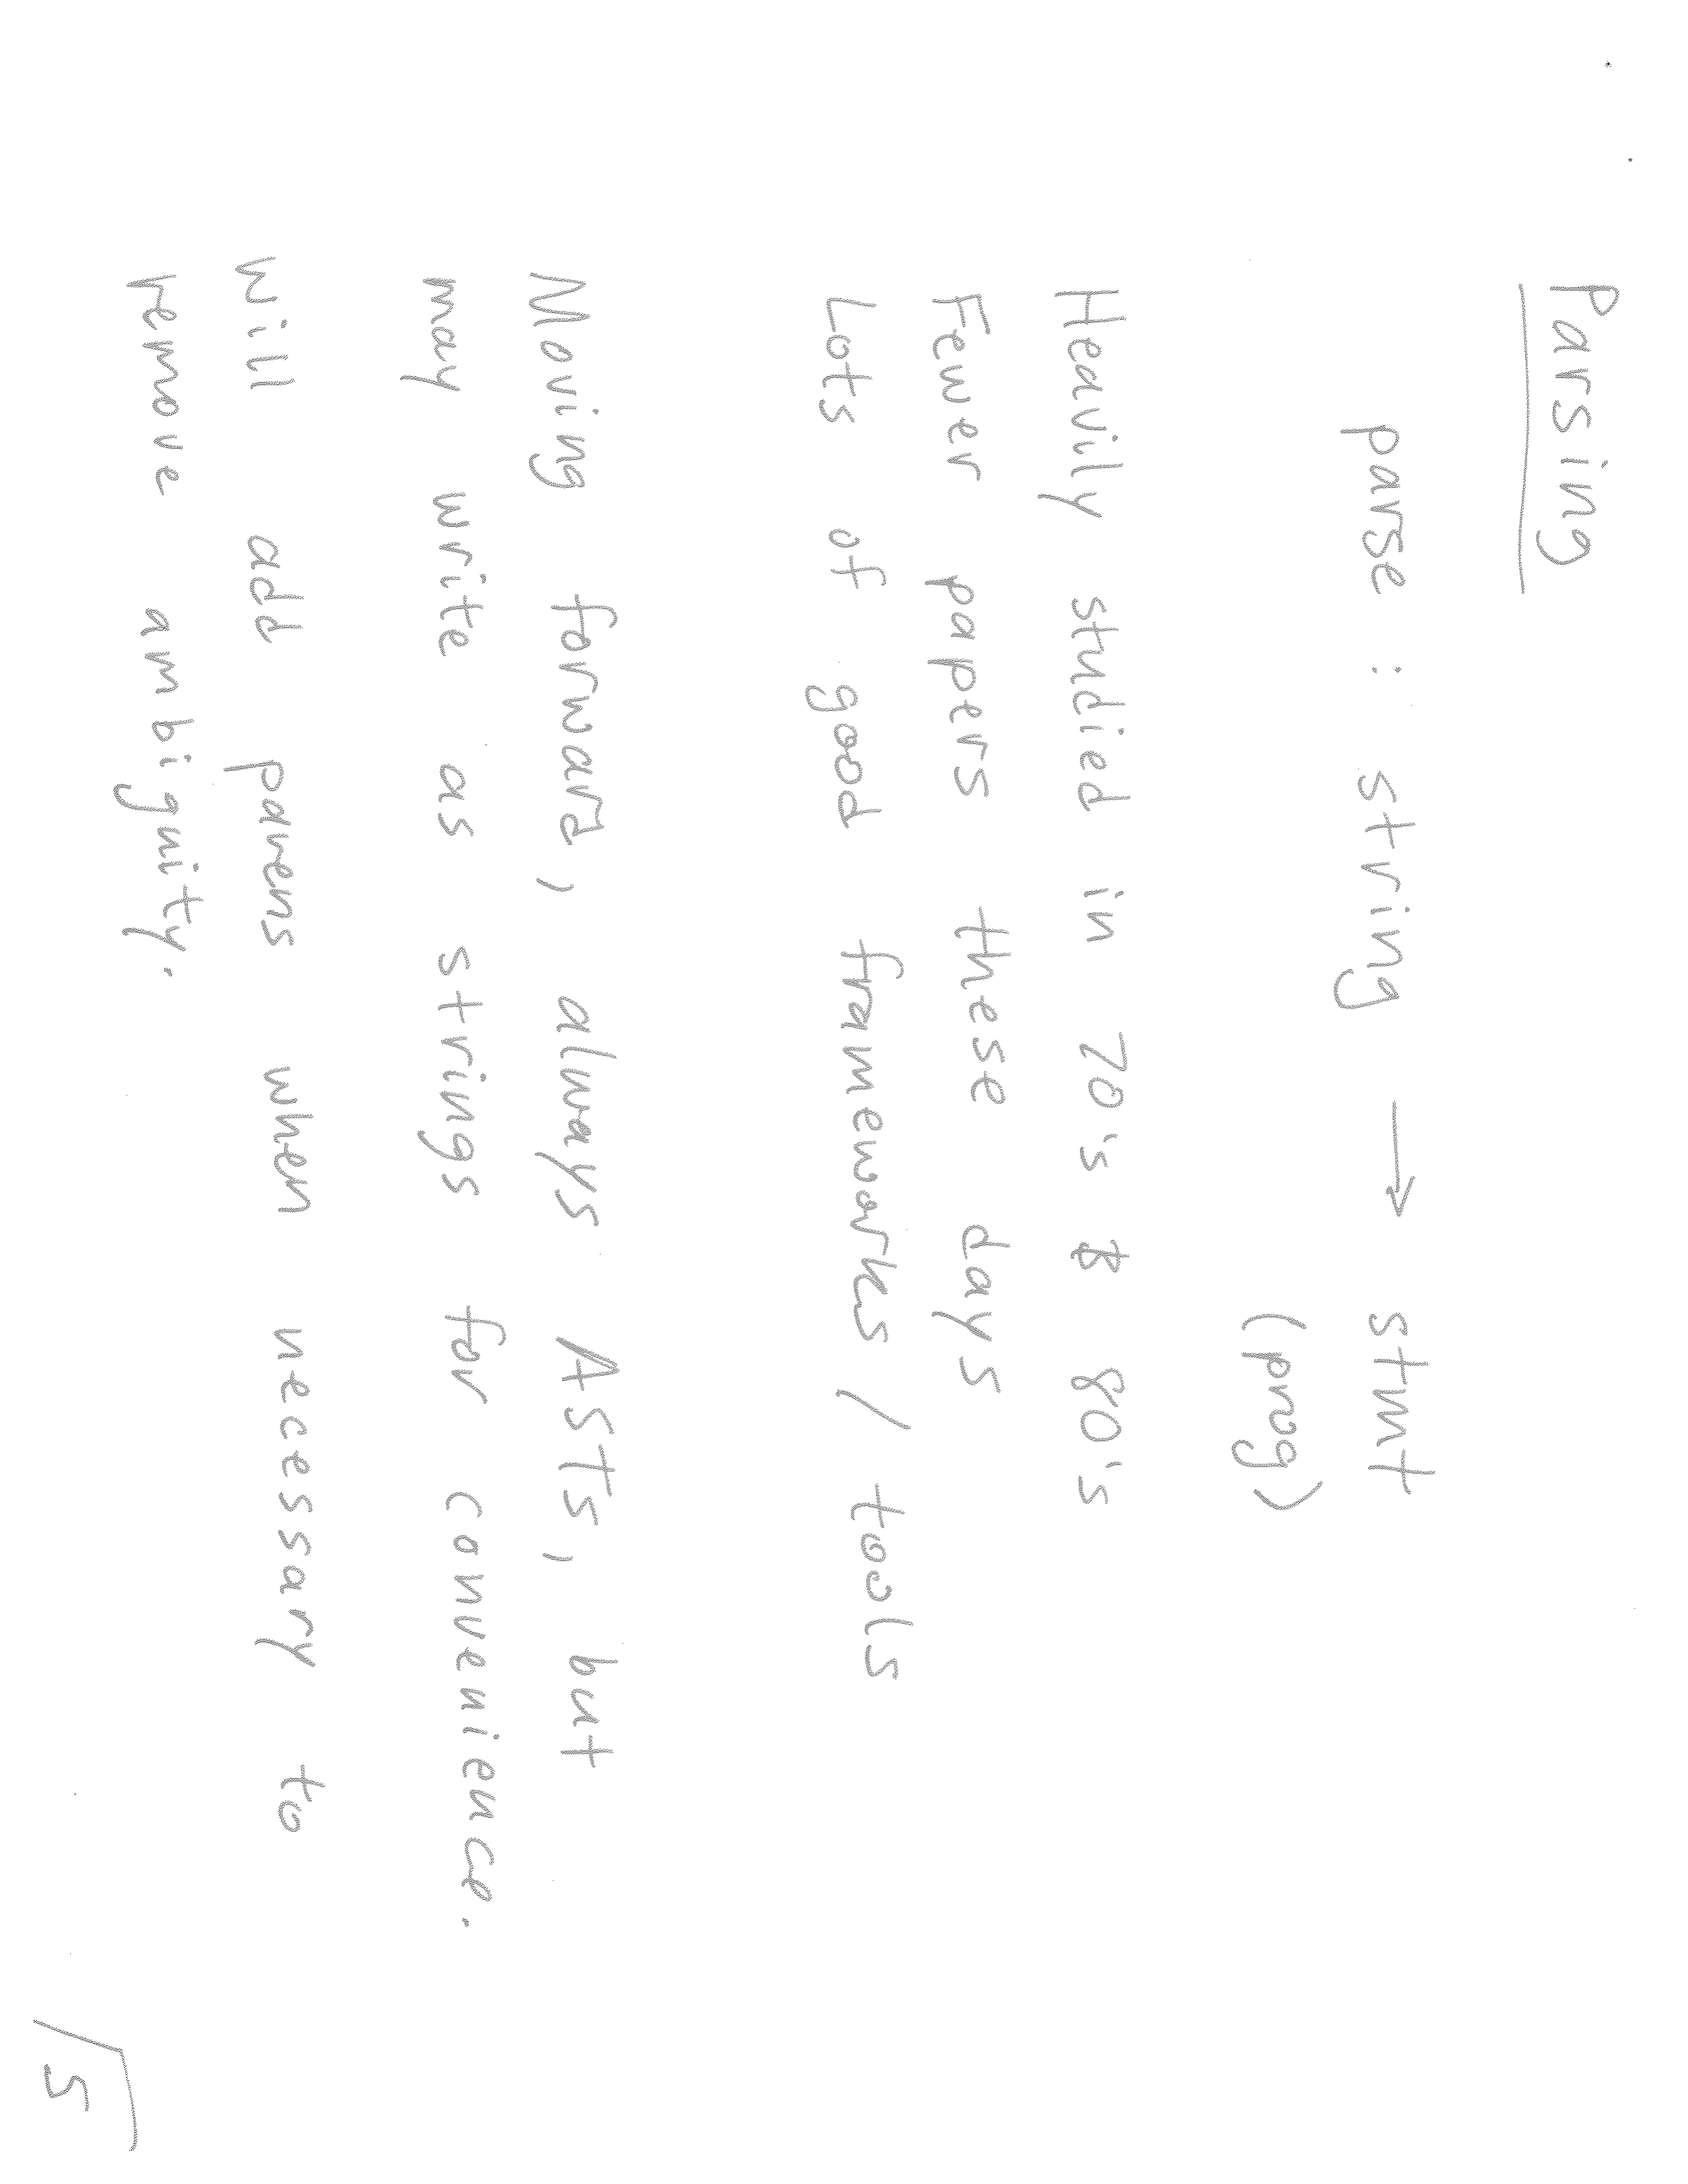 Parsing
parse : string → stmt
(prog)
Heavily studied in 70's & 80's
Fewer papers these days
Lots of good frameworks / tools
Moving forward, always ASTs, but
may write as strings for convenience.
Will add parens when necessary to
remove ambiguity.
5